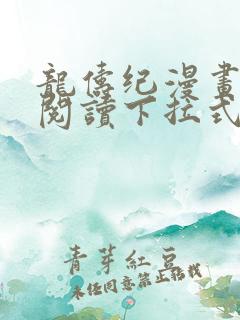 龍傳纪漫畫
閱讀下拉式
青芽紅豆
未经同意禁止转载